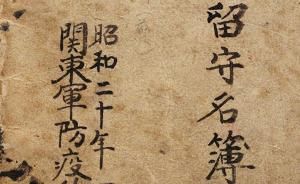 留守名簿
昭和二十年
関東軍防疫